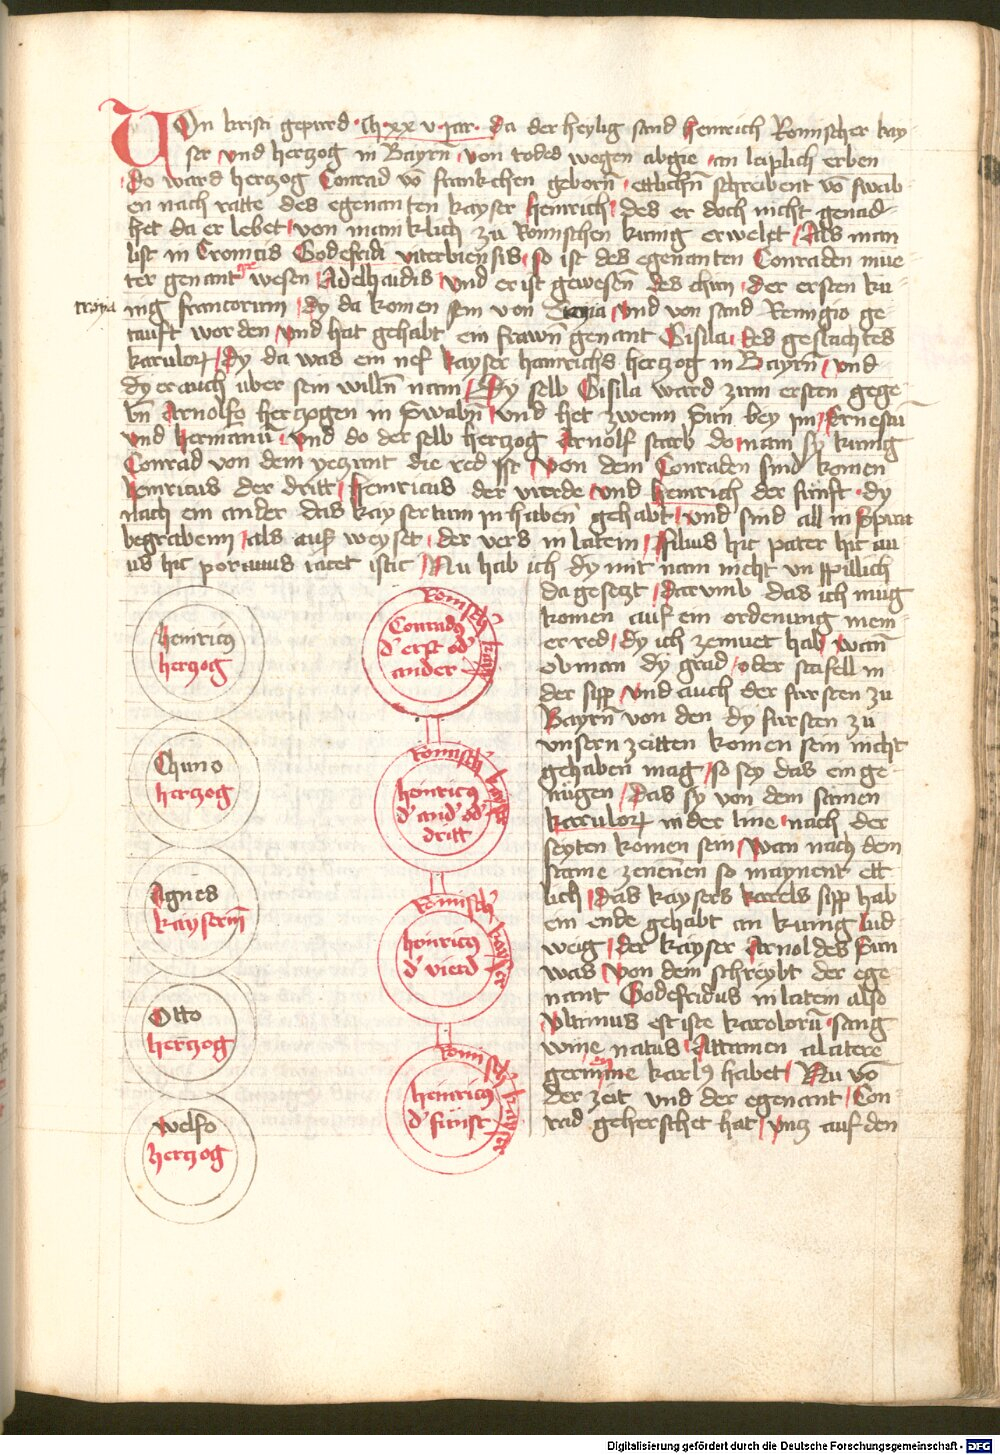 Von kristi gepurd · M · xx v · jar · da der heylig sand henreich Romischer kay
ser vnd herczog in Bayrn von todes wegen abgie an leiplich erben
do ward herczog Conrad võ franckchen geborn ettlichñ schreibent võ swab
en nach ratte des egenanten kayser heinrich des er doch nicht genad
het da er lebet von maniklich zu Romischen kunig erwelet Als man
list in Cronicis Godefridi viterbiensis so ist des egenanten Conraden mue
ter genant wesen Adelhaidis vnd er ist gewesen des chun der ersten ku
troya
nig francorum dy da komen sein von vnd von sand Remigio ge
tauft worden vnd hat gehabt ein frawñ genant Gisila des geslachtes
karulorum Dy da was ein nef kayser hainrichs herczog in Bayrñ vnd
dy er auch uber sein willñ nam Dy selb Gisila ward zum ersten gege
bñ Arnolfo herczogen in Swabñ vnd het zwenn Sun bey im Ernestū
vnd hermanū vnd do der selb herczog Arnolf starb do nam sy kunig
Conrad von dem yeczunt die red ist Von dem Conraden sind komen
henricus der dritt henricus der vierde vnd henrich der funft dy
nach ein ander das kaysertum in haben gehabt vnd sind all in Spira
begraben als auß weyset der vers in latein filius hic pater hic au
us hic proauus iacet istic Nu hab ich dy mit nam nicht vn pillich
da geseczt Darumb das ich mug
komen auf ein ordenung mein
er red dy ich zemuet hab wañ
ob man dy grad oder staffell in
der sipp vnd auch der fursten zu
Bayrñ von den dy fursten zu
vnsern zeitten komen sein nicht
gehaben mag so sey das ein ge
nugen Das sy von dem samen
karulorum in der line nach der
seyten komen sein Wan nach dem
stame zenenen so maynent ett
lich das kaysers karels sipp hab
ein ende gehabt an kunig lud
weig der kayser Arnoldes Sun
was Von dem schreybt der ege
nant Godefridus in latein also
Vltimus est iste karolorū sang
wine natus Attamen a latere
germine karlus habet Nu võ
der zeit vnd der egenant Con
rad geherschet hat vncz auf den
heinricus
herczog
Chuno
herczog
Agnes
kayserin
Otto
herczog
welfo
herczog
Romisch kayser
Conradus
d' erst od'
ander
Romisch kayser
heinricus
d' and' od'
dritt
Romisch kayser
heinricus
d' vierd
Romisch kayser
heinricus
d' funft
Digitalisierung gefördert durch die Deutsche Forschungsgemeinschaft - DFG